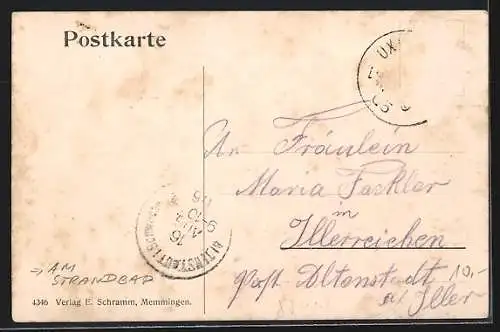 Postkarte
An Fräulein
Maria Fackler
in
Illerreichen
Post Altenstadt
a/ Iller
10,-
16
AUG
9-10
06
→ AM
STRANDBAD
4346 Verlag E. Schramm, Memmingen.